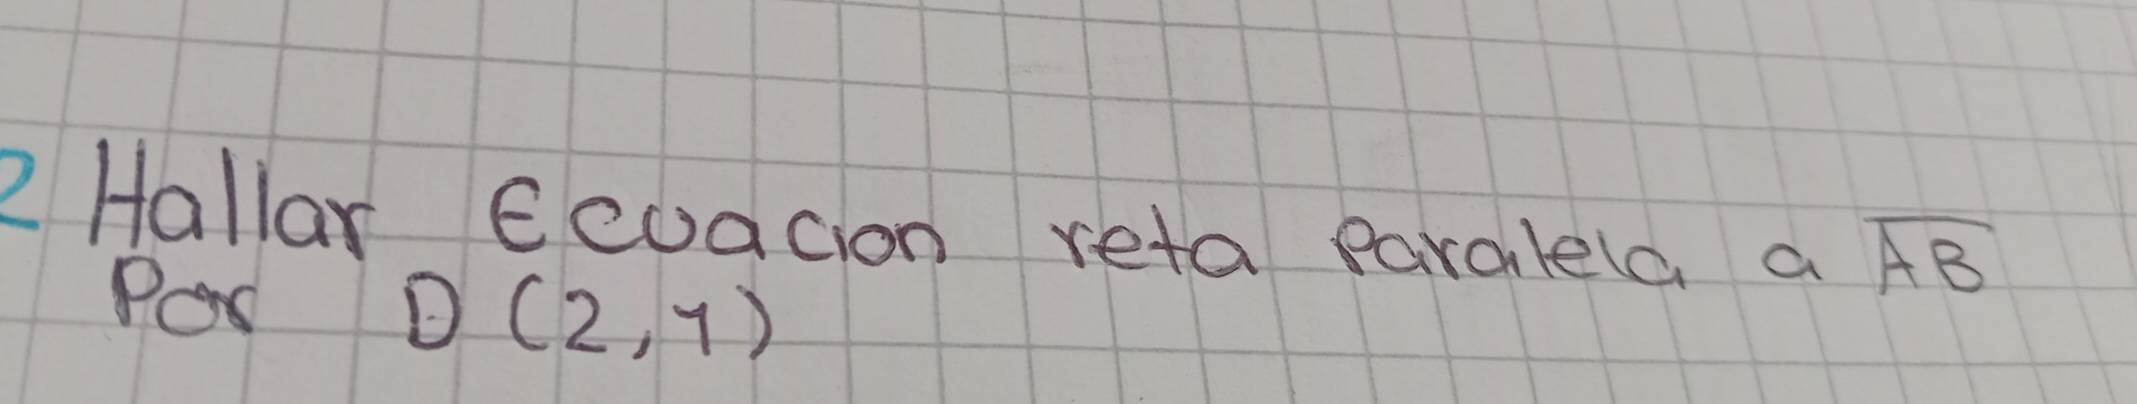 2 Hallar Ecuacion reta Paralela a AB
Por D (2,1)